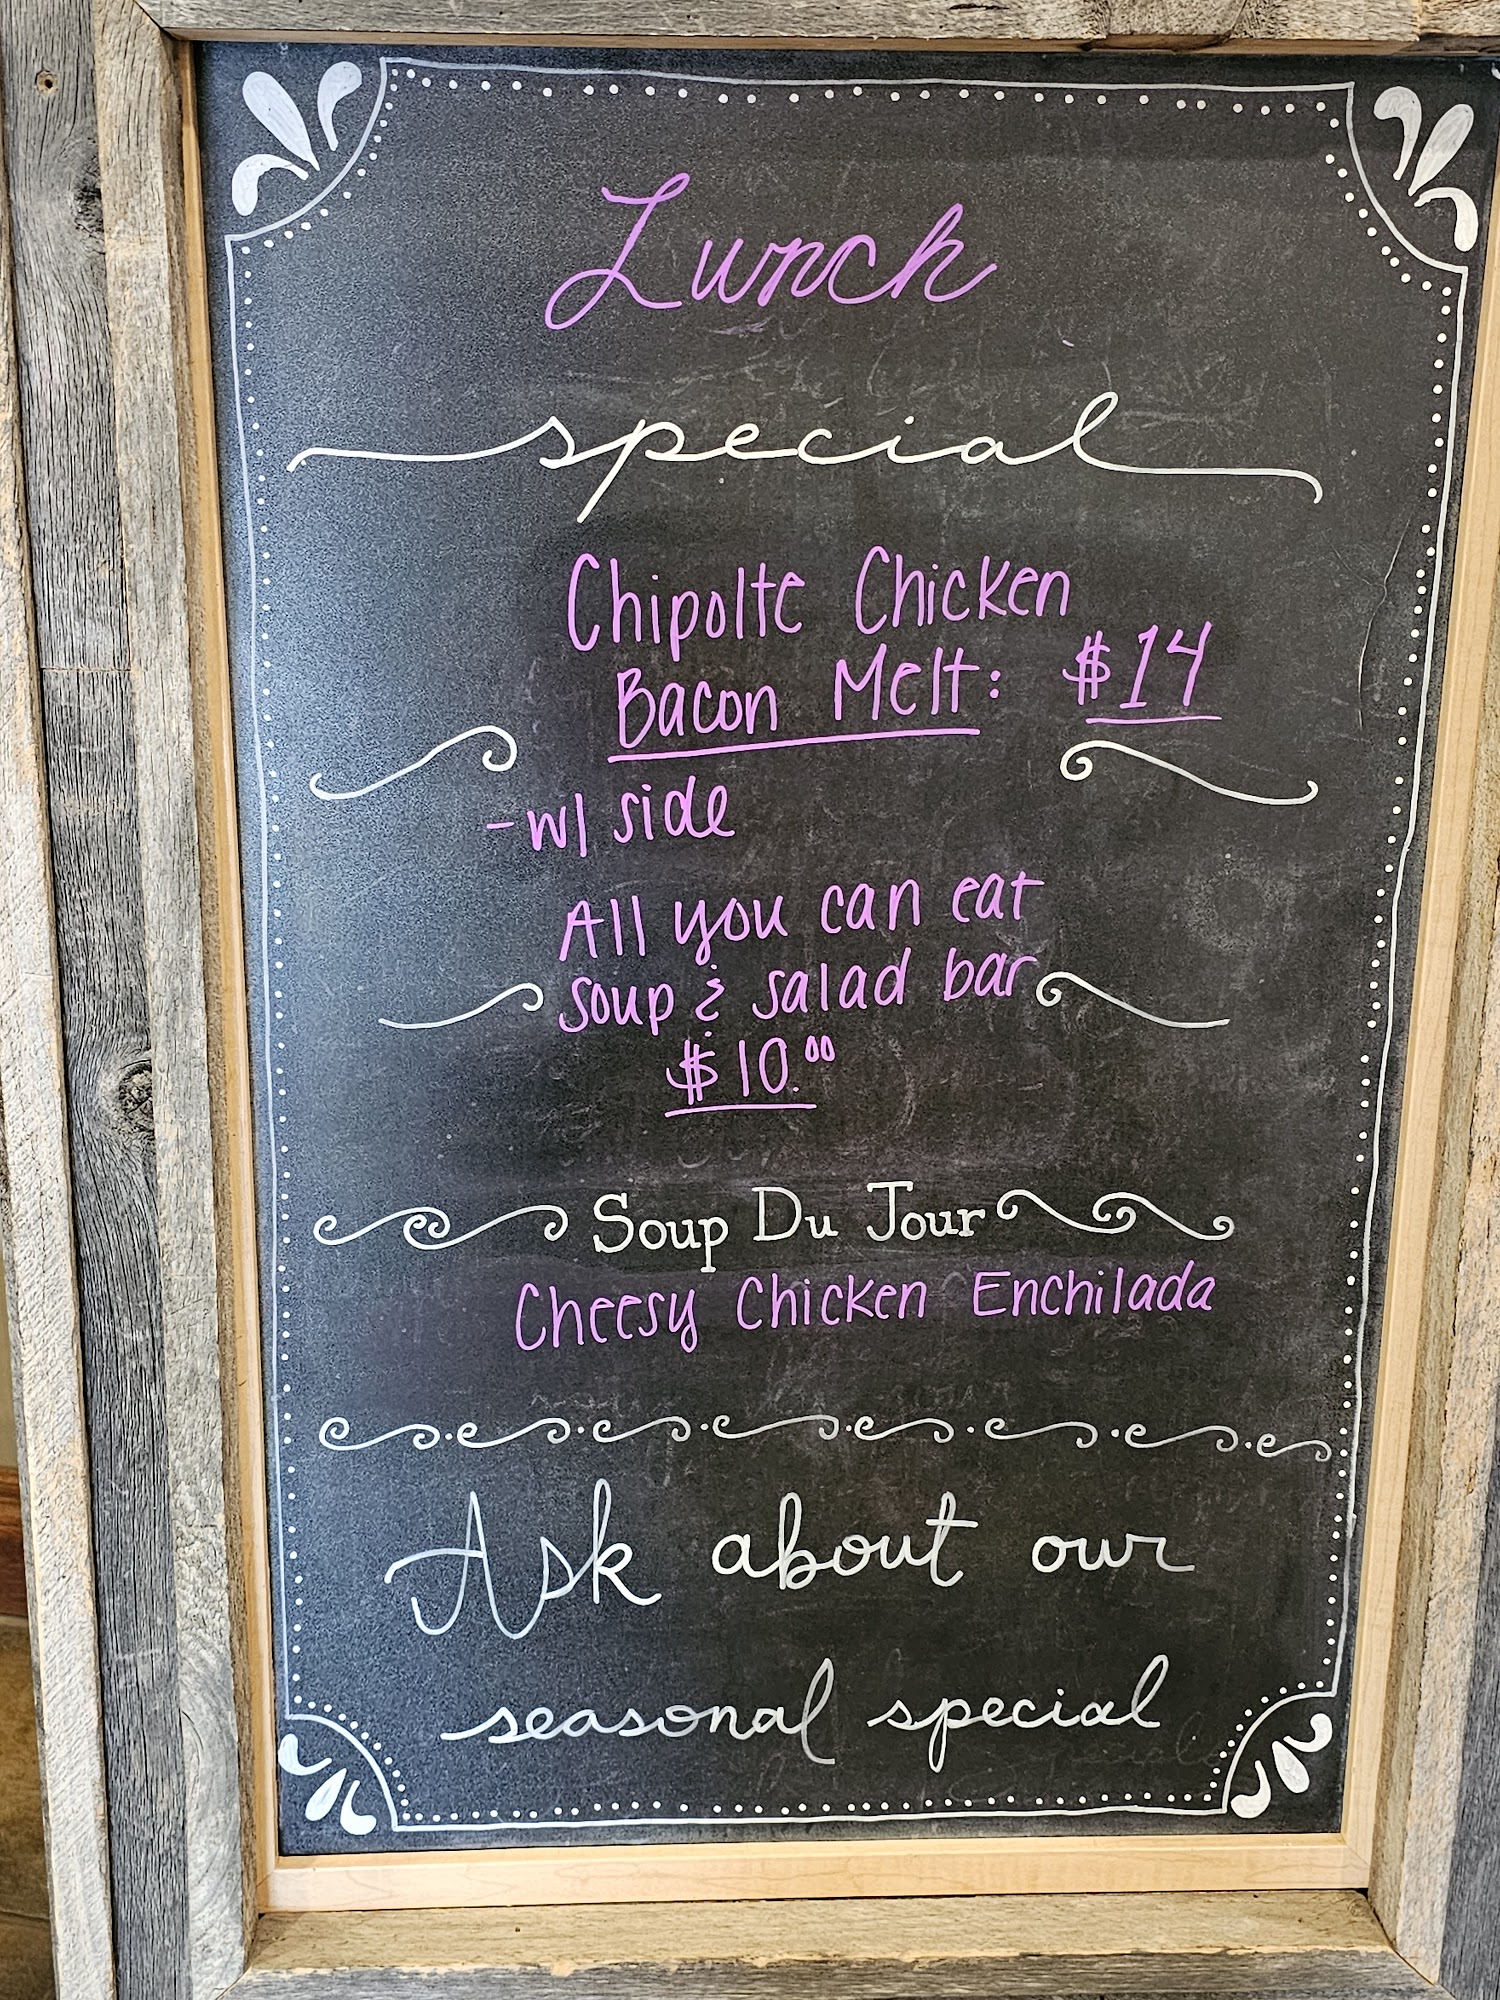 Lunch
special
Chipolte Chicken
Bacon Melt: $14
-w/ side
All you can eat
soup & salad bar
$10.00
Soup Du Jour
Cheesy Chicken Enchilada
Ask about our
seasonal special